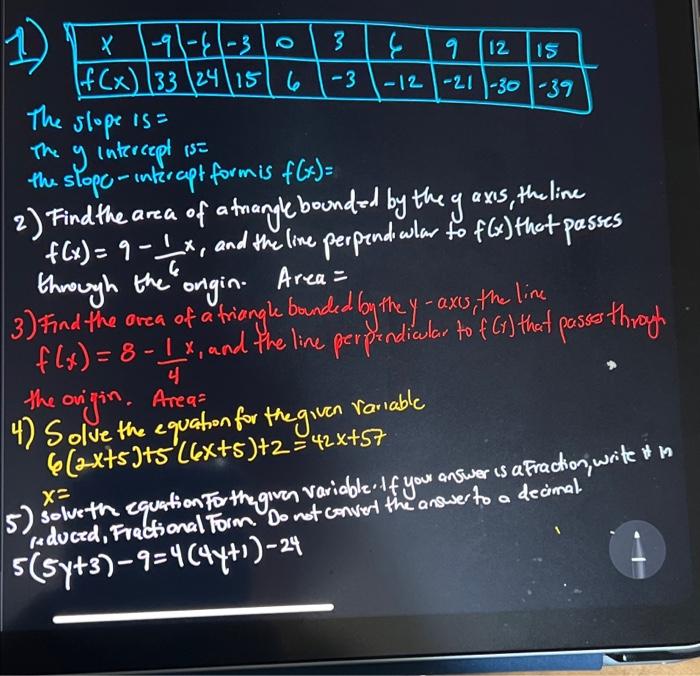 1) x -9 -6 -3 0 3 6 9 12 15
f(x) 33 24 15 6 -3 -12 -21 -30 -39
The slope is=
The y intercept is=
the slope-intercept form is f(x)=
2) Find the area of a triangle bounded by the y axis, the line
f(x) = 9 - 1/6 x, and the line perpendicular to f(x) that passes
through the origin. Area =
3) Find the area of a triangle bounded by the y-axis, the line
f(x) = 8 - 1/4 x, and the line perpendicular to f(x) that passes through
the origin. Area=
4) Solve the equation for the given variable
6(2x+5)+5(6x+5)+2=42x+57
x=
5) solve the equation for the given variable. If your answer is a fraction, write it in
reduced, Fractional Form. Do not convert the answer to a decimal.
5(5y+3)-9=4(4y+1)-24